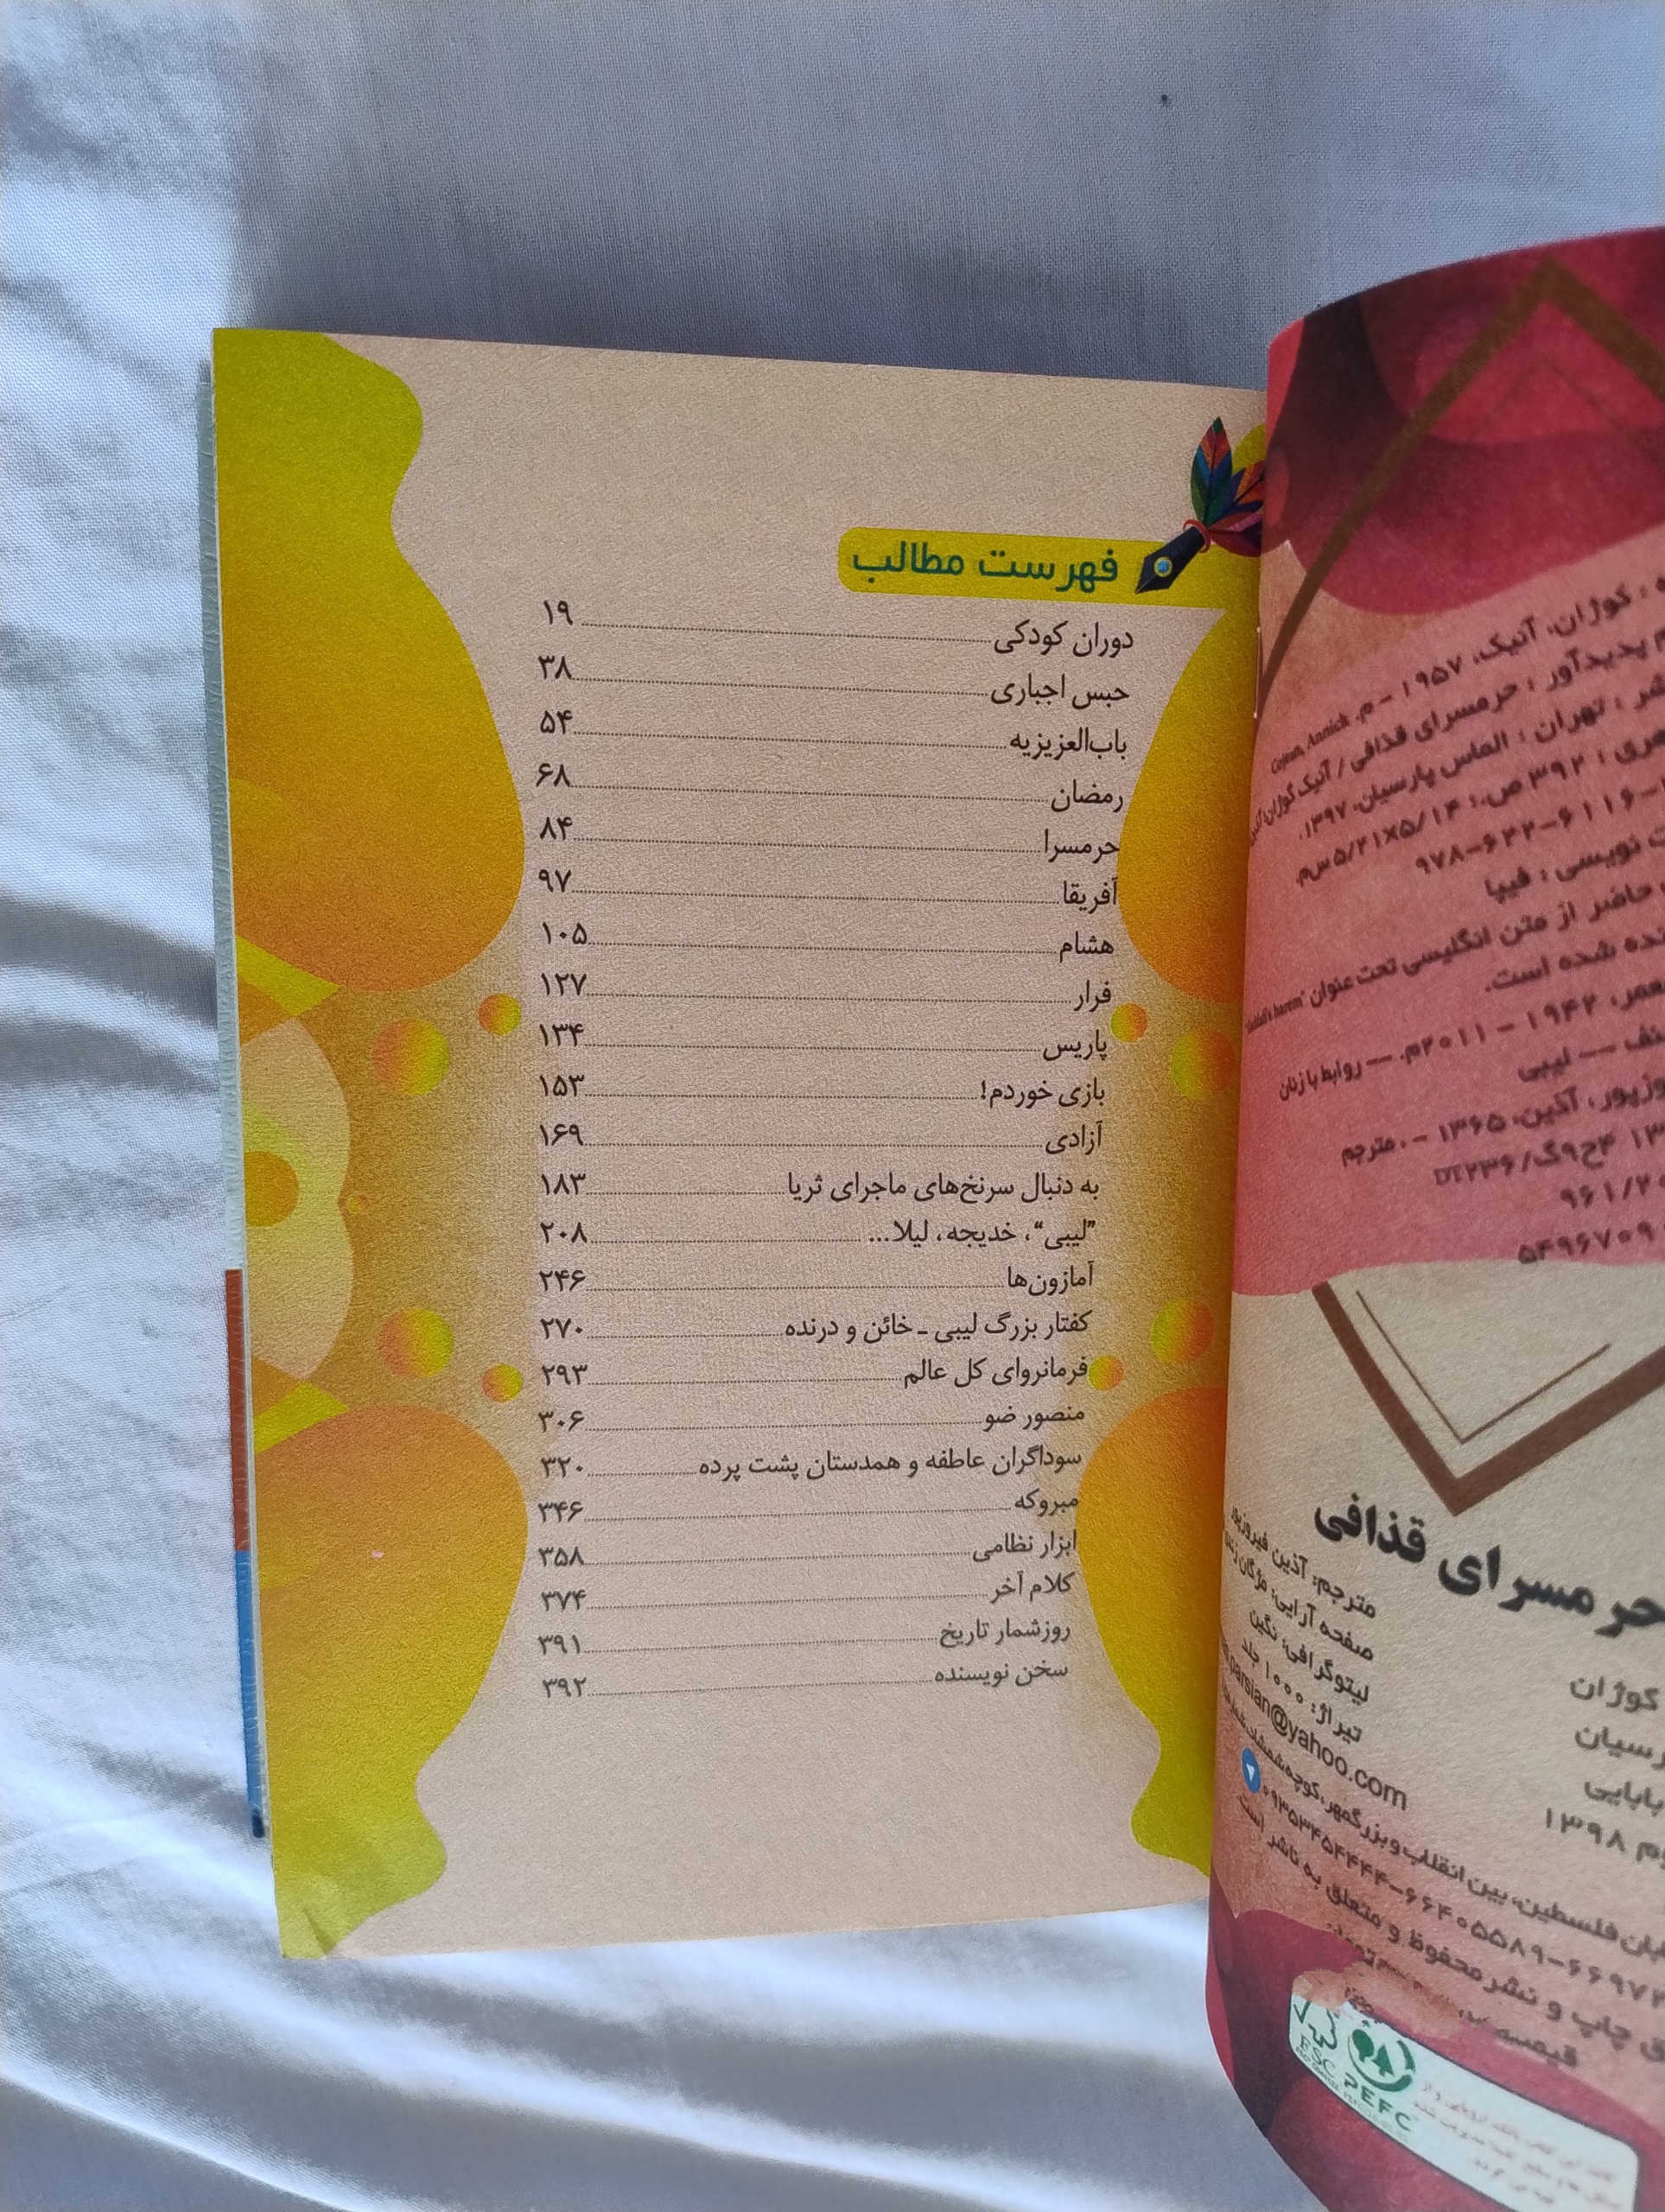 فهرست مطالب
دوران کودکی ۱۹
حبس اجباری ۳۸
باب‌العزیزیه ۵۴
رمضان ۶۸
حرمسرا ۸۴
آفریقا ۹۷
هشام ۱۰۵
فرار ۱۲۷
پاریس ۱۳۴
بازی خوردم! ۱۵۳
آزادی ۱۶۹
به دنبال سرنخ‌های ماجرای ثریا ۱۸۳
”لیبی“، خدیجه، لیلا... ۲۰۸
آمازون‌ها ۲۴۶
کفتار بزرگ لیبی ـ خائن و درنده ۲۷۰
فرمانروای کل عالم ۲۹۳
منصور ضو ۳۰۶
سوداگران عاطفه و همدستان پشت پرده ۳۲۰
مبروکه ۳۴۶
ابزار نظامی ۳۵۸
کلام آخر ۳۷۴
روزشمار تاریخ ۳۹۱
سخن نویسنده ۳۹۲
: کوژان، آنیک، ۱۹۵۷ - م. Cojean, Annick
پدیدآور : حرمسرای قذافی / آنیک کوژان؛
: تهران : الماس پارسیان، ۱۳۹۷.
: ۳۹۲ ص.؛ ۱۴/۵×۲۱/۵ س‌م.
۹۷۸-۶۲۲-۶۱۱۶-
نویسی : فیپا
حاضر از متن انگلیسی تحت عنوان
شده است.
، ۱۹۴۲ - ۲۰۱۱م. -- روابط با زنان
-- لیبی
، آذین، ۱۳۶۵ - ، مترجم
DT۲۳۶/
۹۶۱/۲۰
۵۴۹۶۷۰۹
حرمسرای قذافی
کوژان
مترجم: آذین فیروزپور
صفحه آرایی: مژگان
بابایی
لیتوگرافی: نگین
۱۳۹۸
تیراژ: ۱۰۰۰ جلد
parsian@yahoo.com
فلسطین، بین انقلاب و بزرگمهر، کوچه
۰۹۳۵۳۴۵۴۴۴۴-۶۶۴۰۵۵۸۹-۶۶۹۷۲
چاپ و نشر محفوظ و متعلق به ناشر است
FSC
PEFC